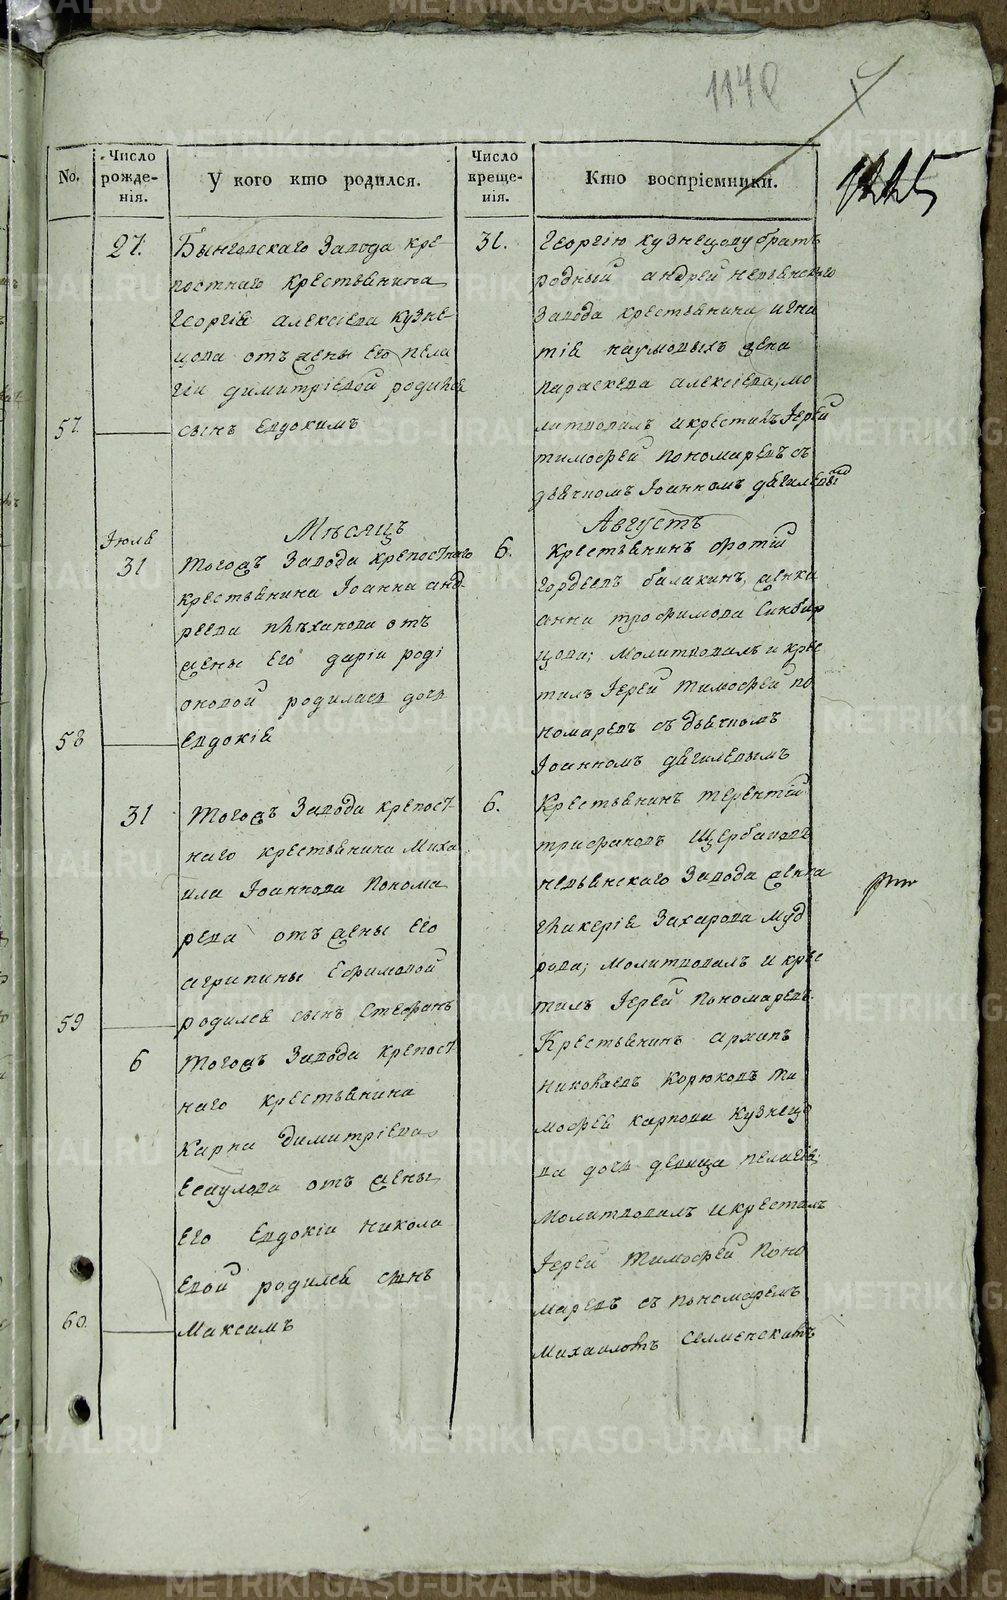 1148
1225
No.
Число рожде-нія.
У кого кто родился.
Число креще-нія.
Кто воспріємники.
27.
Бынговскаго Завода кре
постнаго крестьянина
Георгія алексіева кузне
цова отъ жены его пела
геи димитріевой родился
57.
сынъ Евдокимъ
31.
Георгію кузнецову братъ
родный андрей невьянскаго
Завода крестьянина игна
тія наумовыхъ жена
параскева алексіева; мо
литвовалъ и крестилъ Іерей
тимофей пономаревъ съ
дьячкомъ Іоанномъ дягилевымъ
Мѣсяцъ
Августъ
Іюля
31
Тогожъ Завода крепостнаго
крестьянина Іоанна анд
реева плѣханова отъ
жены его даріи роді
оновой родилась дочь
58
Евдокія
6.
Крестьянинъ фотій
гордеевъ балакинъ, женка
анна трофимова Синбир
цова; молитвовалъ и кре
тилъ Іерей тимофей по
номаревъ съ дьячкомъ
Іоанномъ дягилевымъ
31
Тогожъ Завода крепост
наго крестьянина Миха
ила Іоаннова Понома
рева отъ жены его
агрипины Ефимовой
59
родился сынъ Стефанъ
6.
Крестьянинъ терентій
трифановъ Щербаковъ
невьянскаго Завода женка
гликерія Захарова муд
рова; молитвовалъ и крес
тилъ Іерей Пономаревъ.
6
Тогожъ Завода крепост
наго крестьянина
Карпа димитріева
Есаулова отъ жены
его Евдокіи никола
евой родился сынъ
60.
Максимъ
Крестьянинъ архипъ
николаевъ Корюковъ ти
мофея карпова кузнецо
ва дочь девица пелагея;
молитвовалъ и крестилъ
Іерей тимофей Поно
маревъ съ пономаремъ
Михаиломъ Селменскимъ
METRIKI.GASO-URAL.RU